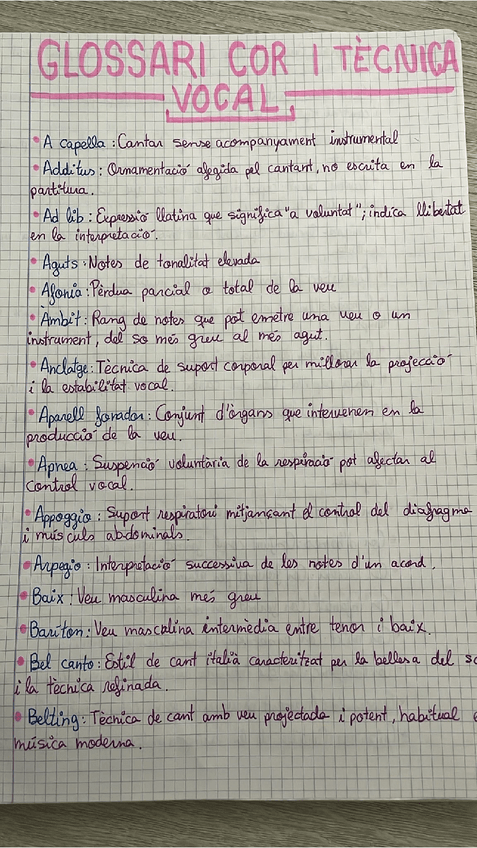 GLOSSARI COR I TÈCNICA
VOCAL
• A capella : Cantar sense acompanyament instrumental
• Additus : Ornamentació afegida pel cantant, no escrita en la
partitura.
• Ad lib : Expressió llatina que significa "a voluntat"; indica llibertat
en la interpretació.
• Aguts : Notes de tonalitat elevada
• Afonia : Pèrdua parcial o total de la veu
• Àmbit : Rang de notes que pot emetre una veu o un
instrument, del so més greu al més agut.
• Anclatge : Tècnica de suport corporal per millorar la projecció
i la estabilitat vocal.
• Aparell fonador : Conjunt d'òrgans que intervenen en la
producció de la veu.
• Apnea : Suspenció voluntària de la respiració pot afectar al
control vocal.
• Appoggio : Suport respiratori mitjançant el control del diafragma
i músculs abdominals.
• Arpegio : Interpretació successiva de les notes d'un acord.
• Baix : Veu masculina més greu
• Bariton : Veu masculina intermèdia entre tenor i baix.
• Bel canto : Estil de cant italià caracteritzat per la bellesa del
i la tècnica refinada.
• Belting : Tècnica de cant amb veu projectada i potent, habitual
música moderna.